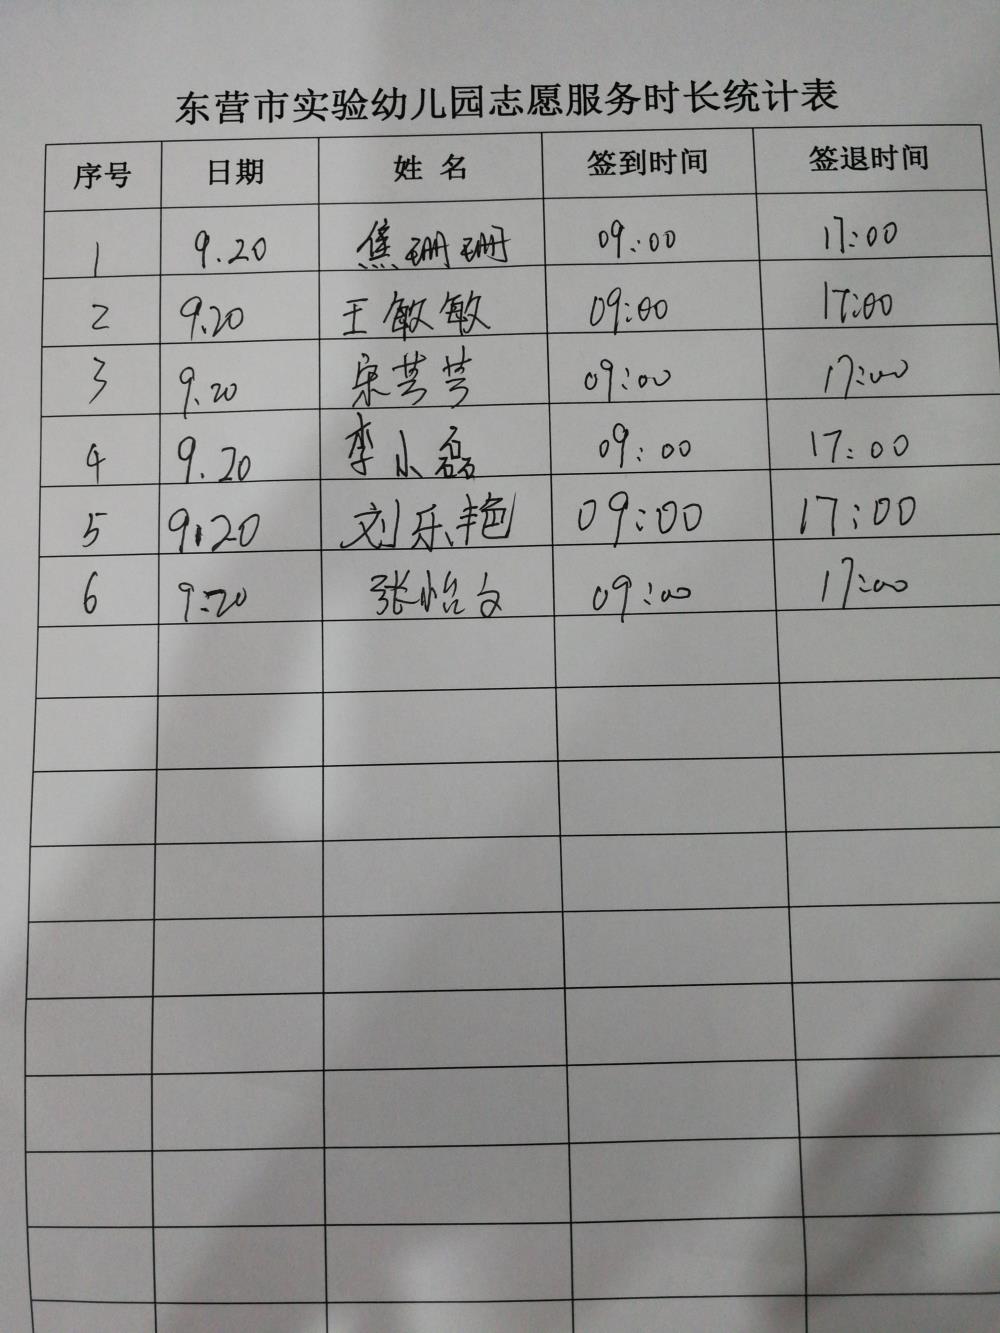 东营市实验幼儿园志愿服务时长统计表
序号 日期 姓名 签到时间 签退时间
1 9.20 焦珊珊 09:00 17:00
2 9.20 王敏敏 09:00 17:00
3 9.20 宋芸芸 09:00 17:00
4 9.20 李小磊 09:00 17:00
5 9.20 刘乐艳 09:00 17:00
6 9.20 张怡文 09:00 17:00